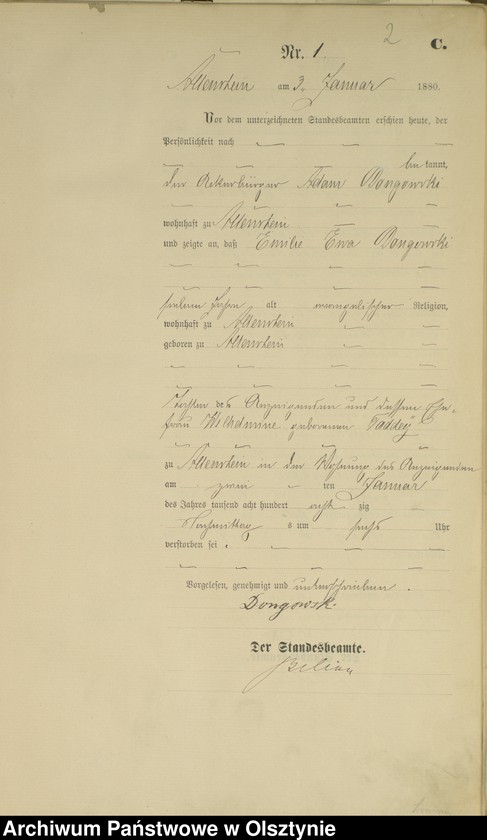 2
C.
Nr. 1.
Allenstein am 3. Januar 1880.
Vor dem unterzeichneten Standesbeamten erschien heute, der
Persönlichkeit nach
bekannt,
der Ackerbürger Adam Dongowski
wohnhaft zu Allenstein
und zeigte an, daß Emilie Eva Dongowski
sieben Jahre alt evangelischer Religion,
wohnhaft zu Allenstein
geboren zu Allenstein
Tochter des Anzeigenden und dessen Ehe-
frau Wilhelmine geborenen Taddey
zu Allenstein in der Wohnung des Anzeigenden
am zwei ten Januar
des Jahres tausend acht hundert acht zig
Nachmittag s um sechs Uhr
verstorben sei.
Vorgelesen, genehmigt und unterschrieben.
Dongowski
Der Standesbeamte.
Archiwum Państwowe w Olsztynie